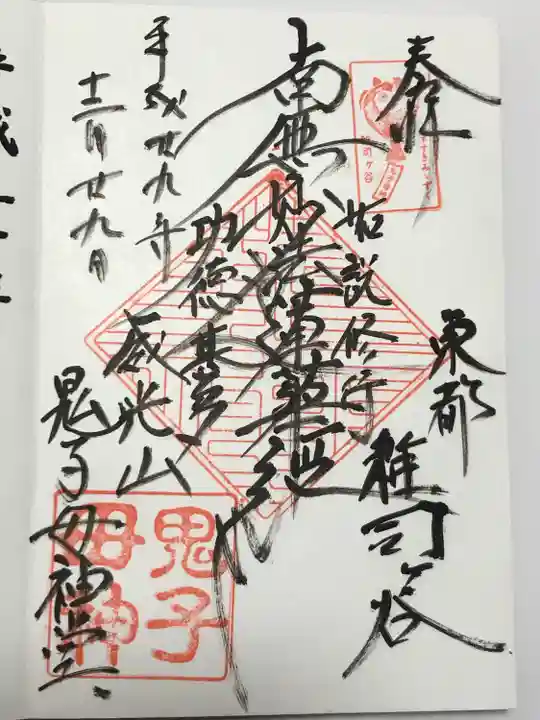 奉拝
東都
雑司ケ谷
如説修行
南無妙法蓮華経
功徳甚多
威光山
鬼子母神堂
平成廿九年
十二月廿九日
鬼子
母神